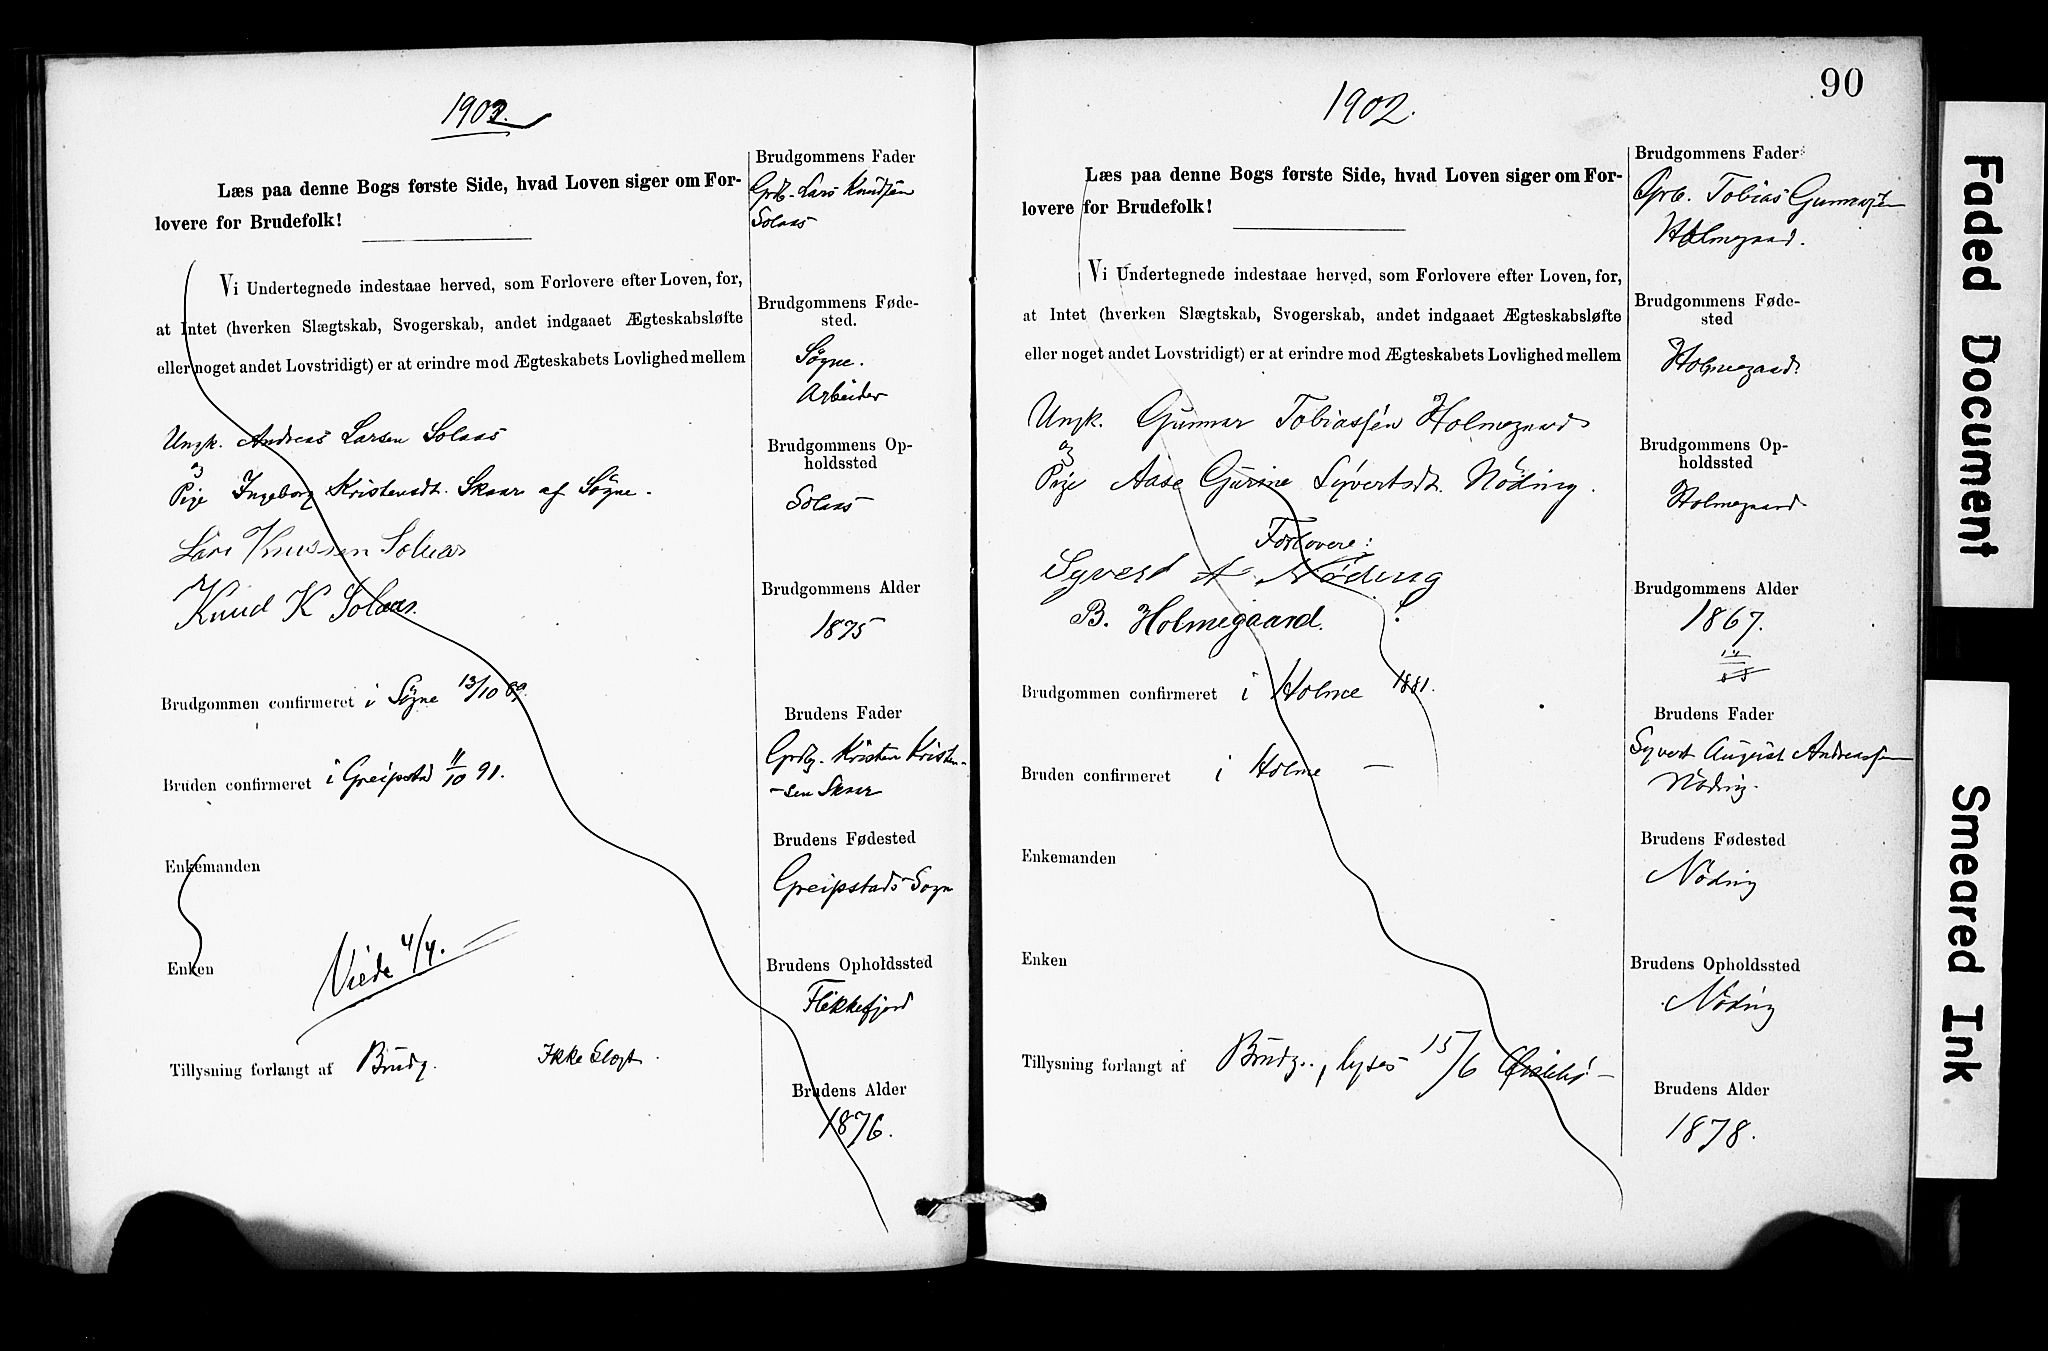 1902.
Læs paa denne Bogs første Side, hvad Loven siger om For-
lovere for Brudefolk!
Vi Undertegnede indestaae herved, som Forlovere efter Loven, for,
at Intet (hverken Slægtskab, Svogerskab, andet indgaaet Ægteskabsløfte
eller noget andet Lovstridigt) er at erindre mod Ægteskabets Lovlighed mellem
Ungk. Andreas Larsen Solaas
og
Pige Ingeborg Kristensdt. Skaar af Søgne.
Lars Knussen Solaas
Knud K Solaas.
Brudgommen confirmeret i Søgne 13/10 89.
Bruden confirmeret i Greipstad 11/10 91.
Enkemanden
Enken
Viede 4/4.
Tillysning forlangt af Brudg. Ikke Slegt.
Brudgommens Fader
Grdb. Lars Knudsen
Solaas
Brudgommens Føde-
sted.
Søgne.
Arbeider
Brudgommens Op-
holdssted
Solaas
Brudgommens Alder
1875
Brudens Fader
Grdbg. Kristen Kristen-
-sen Skaar
Brudens Fødested
Greipstads Sogn
Brudens Opholdssted
Flekkefjord
Brudens Alder
1876.
90
1902.
Læs paa denne Bogs første Side, hvad Loven siger om For-
lovere for Brudefolk!
Vi Undertegnede indestaae herved, som Forlovere efter Loven, for,
at Intet (hverken Slægtskab, Svogerskab, andet indgaaet Ægteskabsløfte
eller noget andet Lovstridigt) er at erindre mod Ægteskabets Lovlighed mellem
Ungk. Gunnar Tobiassen Holmegaard
og
Pige Aase Gurine Syvertsdt. Nöding.
Forlovere:
Syvert A Nøding
B. Holmegaard.
Brudgommen confirmeret i Holme 1881.
Bruden confirmeret i Holme —
Enkemanden
Enken
Tillysning forlangt af Brudg., lyses 15/6
Brudgommens Fader
Grb. Tobias Gunnarsen
Holmegaard.
Brudgommens Føde-
sted
Holmegaard.
Brudgommens Op-
holdssted
Holmegaard.
Brudgommens Alder
1867.
Brudens Fader
Syvert August Andreassen
Nöding.
Brudens Fødested
Nöding
Brudens Opholdssted
Nöding
Brudens Alder
1878.
Faded Document
Smeared Ink